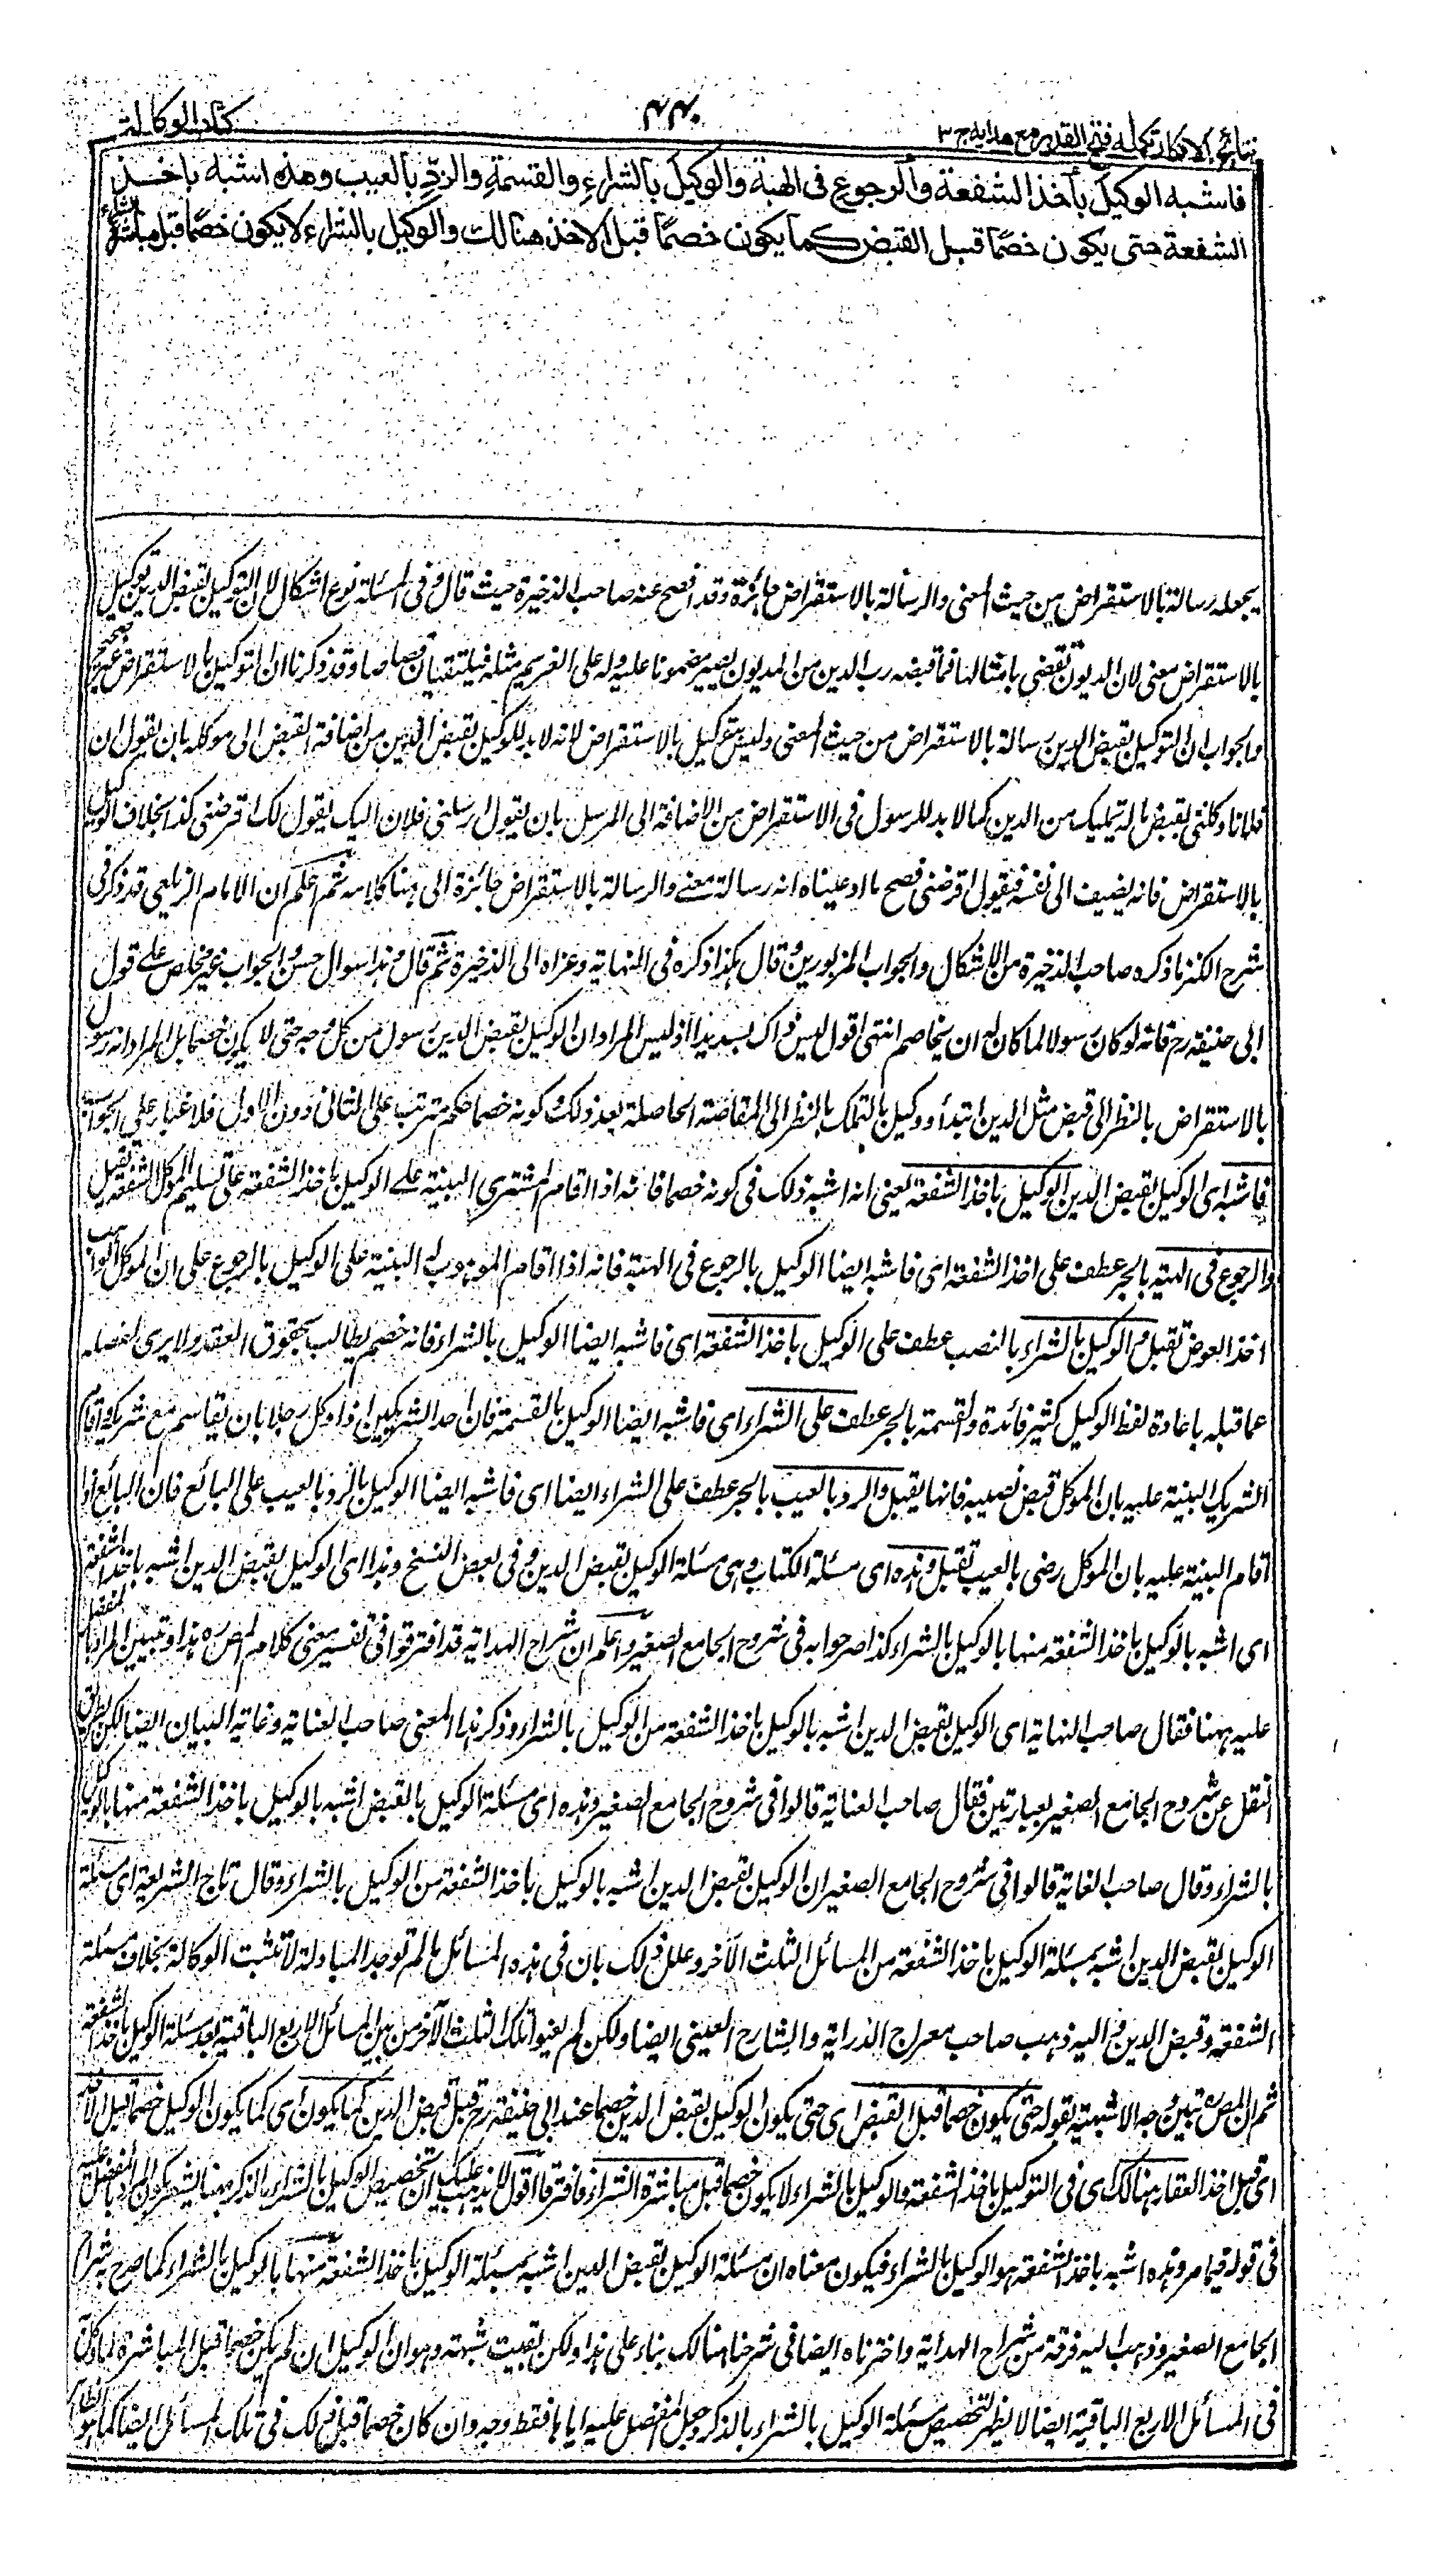 نتائج الافكار تكمله فتح القدير مع هدايه ج ٣
٤٤٠
كتاب الوكالة
فاشبه الوكيل بأخذ الشفعة والرجوع فى الهبة والوكيل بالشراء والقسمة والرد بالعيب وهذه اشبه باخذ
الشفعة حتى يكون خصمًا قبل القبض كما يكون خصمًا قبل الاخذ هنالك والوكيل بالشراء لا يكون خصمًا قبل مباشرة الشراء
يجعله رسالة بالاستقراض من حيث المعنى والرسالة بالاستقراض جائزة وقد افصح عنه صاحب الذخيرة حيث قال وفى المسئلة نوع اشكال لان التوكيل بقبض الدين توكيل
بالاستقراض معنى لان الديون تقضى بامثالها فما قبضه رب الدين من المديون يصير مضمونا عليه وله على الغريم مثله فيلتقيان قصاصا وقد ذكرنا ان التوكيل بالاستقراض غير صحيح
والجواب ان التوكيل بقبض الدين رسالة بالاستقراض من حيث المعنى وليس بتوكيل بالاستقراض لانه لا بد للوكيل بقبض الدين من اضافة القبض الى موكله بان يقول ان
فلانا وكلنى بقبض ماله عليك من الدين كما لا بد للرسول فى الاستقراض من الاضافة الى المرسل بان يقول ارسلنى فلان اليك يقول لك اقرضنى كذا بخلاف الوكيل
بالاستقراض فانه يضيف الى نفسه فيقول اقرضنى فصح ما ادعيناه انه رسالة معنى والرسالة بالاستقراض جائزة الى هنا كلامه ثم اعلم ان الامام الزيلعى قد ذكر فى
شرح الكنز ما ذكره صاحب الذخيرة من الاشكال والجواب المزبورين وقال هكذا ذكره فى النهاية وعزاه الى الذخيرة ثم قال وهذا سوال حسن والجواب غير مخلص على قول
ابى حنيفة رح فانه لو كان رسولا لما كان له ان يخاصم انتهى اقول ليس ذاك بسديد اذ ليس المراد ان الوكيل بقبض الدين رسول من كل وجه حتى لا يكون خصما بل المراد انه رسول
بالاستقراض بالنظر الى قبض مثل الدين ابتداء ووكيل بالتملك بالنظر الى المقاصة الحاصلة بعد ذلك وكونه خصما حكم مترتب على الثانى دون الاول فلا غبار على الجواب
فاشبه اى الوكيل بقبض الدين الوكيل باخذ الشفعة يعنى انه اشبه ذلك فى كونه خصما فانه اذا اقام المشترى البينة على الوكيل باخذ الشفعة على تسليم الموكل الشفعة تقبل
والرجوع فى الهبة بالجر عطف على اخذ الشفعة اى فاشبه ايضا الوكيل بالرجوع فى الهبة فانه اذا اقام الموهوب له البينة على الوكيل بالرجوع على ان الموكل الواهب
اخذ العوض تقبل والوكيل بالشراء بالنصب عطف على الوكيل باخذ الشفعة اى فاشبه ايضا الوكيل بالشراء فانه خصم يطالب بحقوق العقد ولا يرى لفصله
عما قبله باعادة لفظ الوكيل كثير فائدة والقسمة بالجر عطف على الشراء اى فاشبه ايضا الوكيل بالقسمة فان احد الشريكين اذا وكل رجلا بان يقاسم مع شريكه واقام
الشريك البينة عليه بان الموكل قبض نصيبه فانها تقبل والرد بالعيب بالجر عطف على الشراء ايضا اى فاشبه ايضا الوكيل بالرد بالعيب على البائع فان البائع اذا
اقام البينة عليه بان الموكل رضى بالعيب تقبل وهذه اى مسئلة الكتاب وهى مسئلة الوكيل بقبض الدين وفى بعض النسخ وهذا اى الوكيل بقبض الدين اشبه باخذ الشفعة
اى اشبه بالوكيل باخذ الشفعة منها بالوكيل بالشراء كذا صرحوا به فى شروح الجامع الصغير واعلم ان شراح الهداية قد افترقوا فى تفسير معنى كلام المص ره هذا وتبيين المراد بالمفضل
عليه ههنا فقال صاحب النهاية اى الوكيل بقبض الدين اشبه بالوكيل باخذ الشفعة من الوكيل بالشراء وذكر هذا المعنى صاحب العناية وغاية البيان ايضا لكن بطريق
النقل عن شروح الجامع الصغير بعبارتين فقال صاحب العناية قالوا فى شروح الجامع الصغير وهذه اى مسئلة الوكيل بالقبض اشبه بالوكيل باخذ الشفعة منها بالوكيل
بالشراء وقال صاحب الغاية قالوا فى شروح الجامع الصغير ان الوكيل بقبض الدين اشبه بالوكيل باخذ الشفعة من الوكيل بالشراء وقال تاج الشريعة اى مسئلة
الوكيل بقبض الدين اشبه بمسئلة الوكيل باخذ الشفعة من المسائل الثلث الآخر وعلل ذلك بان فى هذه المسائل ما لم توجد المبادلة لا تثبت الوكالة بخلاف مسئلة
الشفعة وقبض الدين واليه ذهب صاحب معراج الدراية والشارح العينى ايضا ولكن لم يعنوا تلك الثلث الآخر من بين المسائل الاربع الباقية بعد مسئلة الوكيل باخذ الشفعة
ثم ان المص ره بين وجه الاشبهية بقوله حتى يكون خصما قبل القبض اى حتى يكون الوكيل بقبض الدين خصما عند ابى حنيفة رح قبل قبض الدين كما يكون اى كما يكون الوكيل خصما قبل الاخذ
اى قبل اخذ العقار هنالك اى فى التوكيل باخذ الشفعة والوكيل بالشراء لا يكون خصما قبل مباشرة الشراء فافترقا اقول لا يذهب عليك ان تخصيص الوكيل بالشراء بالذكر ههنا يشعر بكون المراد بالمفضل عليه
فى قوله فيما مر وهذه اشبه باخذ الشفعة هو الوكيل بالشراء فيكون معناه ان مسئلة الوكيل بقبض الدين اشبه بمسئلة الوكيل باخذ الشفعة منها بالوكيل بالشراء كما صرح به شراح
الجامع الصغير وذهب اليه فرقة من شراح الهداية واخترناه ايضا فى شرحنا هنالك بناء على هذا ولكن بقيت شبهة وهو ان الوكيل ان لم يكن خصما قبل المباشرة لما وكل
فى المسائل الاربع الباقية ايضا لا يظهر لتخصيص مسئلة الوكيل بالشراء بالذكر وجعل المفضل عليه اياها فقط وجه وان كان خصما قبل ذلك فى تلك المسائل ايضا كما هو الظاهر